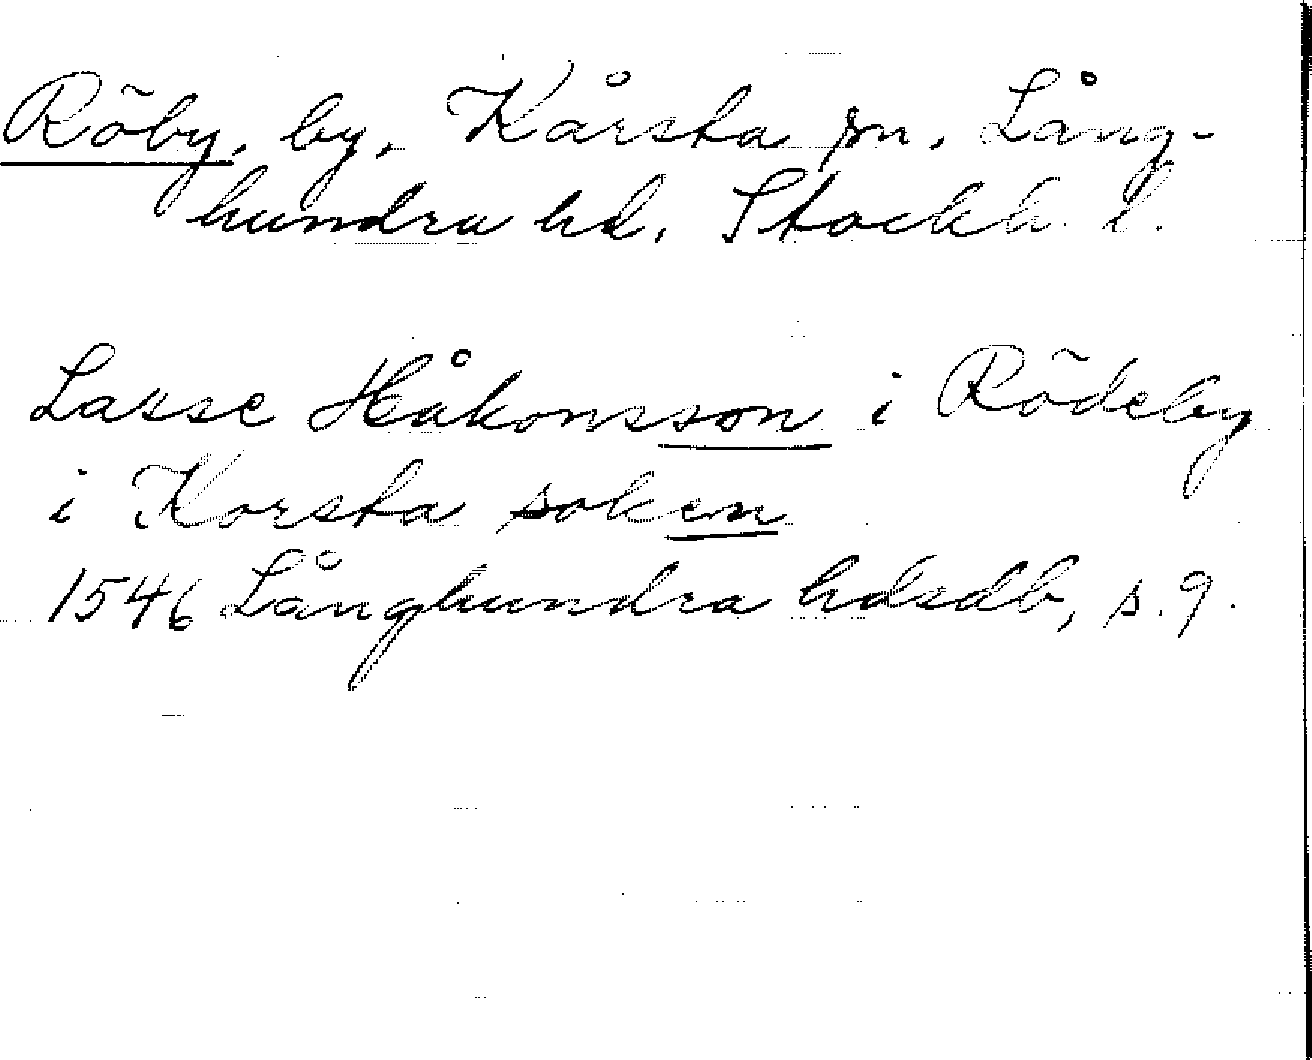 Röby, by, Kårsta sn, Lång-
hundra hd, Stockh. l.
Lasse Håkonsson i Rödeby
i Korsta soken
1546 Långhundra hdsdb, s. 9.